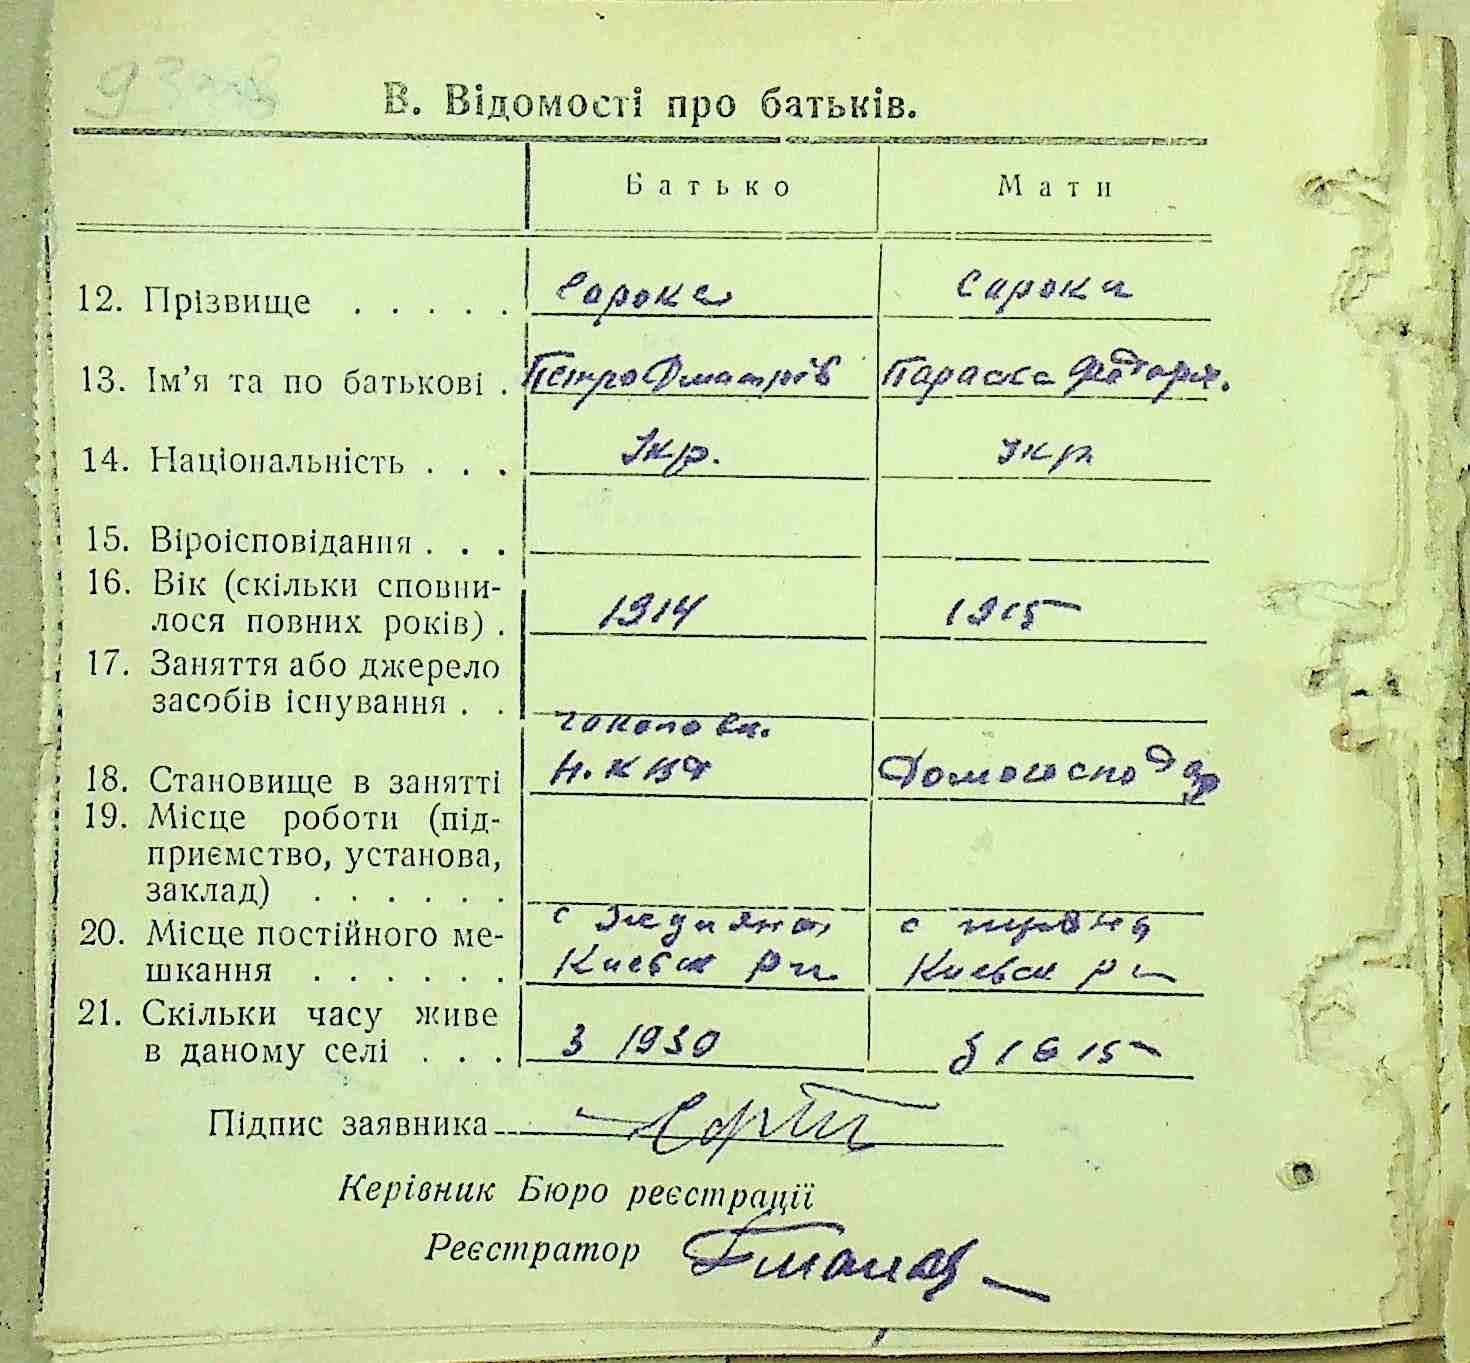 В. Відомості про батьків.
Батько Мати
12. Прізвище . . . . . Сорока Сорока
13. Ім’я та по батькові . Петро Дмитрів Параска Федорів.
14. Національність . . . Укр. Укр
15. Віроісповідання . . .
16. Вік (скільки сповни-
лося повних років) . 1914 1915
17. Заняття або джерело
засобів існування . .
18. Становище в занятті Домогосподар
19. Місце роботи (під-
приємство, установа,
заклад) . . . . . .
с с
20. Місце постійного ме-
шкання . . . . . . Київск р-н Київск р-н
21. Скільки часу живе
в даному селі . . . З 1930 З 1915
Підпис заявника
Керівник Бюро реєстрації
Реєстратор